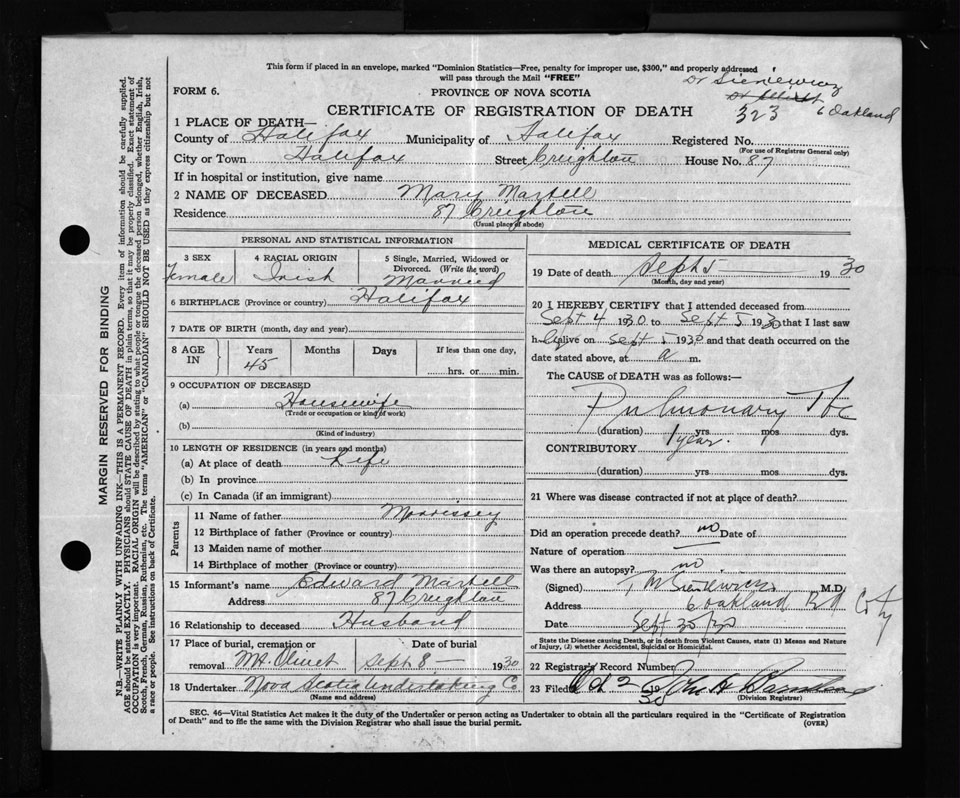 This form if placed in an envelope, marked "Dominion Statistics—Free, penalty for improper use, $300," and properly addressed
will pass through the Mail "FREE"
Dr Sieniewicz
FORM 6.
PROVINCE OF NOVA SCOTIA
323 6 Oakland
CERTIFICATE OF REGISTRATION OF DEATH
1 PLACE OF DEATH—
County of Halifax Municipality of Halifax Registered No.
(For use of Registrar General only)
City or Town Halifax Street Creighton House No. 87
If in hospital or institution, give name
2 NAME OF DECEASED Mary Martell
Residence 87 Creighton
(Usual place of abode)
PERSONAL AND STATISTICAL INFORMATION
3 SEX 4 RACIAL ORIGIN 5 Single, Married, Widowed or
Divorced. (Write the word)
Female Irish Married
6 BIRTHPLACE (Province or country) Halifax
7 DATE OF BIRTH (month, day and year)
8 AGE IN Years Months Days If less than one day,
45 hrs. or min.
9 OCCUPATION OF DECEASED
(a) Housewife
(Trade or occupation or kind of work)
(b)
(Kind of industry)
10 LENGTH OF RESIDENCE (in years and months)
(a) At place of death Life
(b) In province
(c) In Canada (if an immigrant)
Parents
11 Name of father Morrissey
12 Birthplace of father (Province or country)
13 Maiden name of mother
14 Birthplace of mother (Province or country)
15 Informant's name Edward Martell
Address 87 Creighton
16 Relationship to deceased Husband
17 Place of burial, cremation or Date of burial
removal Mt. Olivet Sept 8 — 1930
18 Undertaker Nova Scotia Undertaking Co
(Name and address)
MEDICAL CERTIFICATE OF DEATH
19 Date of death Sept 5 — 1930
(Month, day and year)
20 I HEREBY CERTIFY that I attended deceased from
Sept 4 1930 to Sept 5 1930 that I last saw
her alive on Sept 5 1930 and that death occurred on the
date stated above, at a m.
The CAUSE OF DEATH was as follows:—
Pulmonary Tbc
(duration) 1 year. yrs. mos. dys.
CONTRIBUTORY
(duration) yrs. mos. dys.
21 Where was disease contracted if not at place of death?
Did an operation precede death? no Date of
Nature of operation
Was there an autopsy? no.
(Signed) T M Sieniewicz M.D.
Address 6 Oakland Rd City
Date Sept 30/30
State the Disease causing Death, or in death from Violent Causes, state (1) Means and Nature
of Injury, (2) whether Accidental, Suicidal or Homicidal.
22 Registrar's Record Number
23 Filed Oct 2 1930 John A
(Division Registrar)
SEC. 46—Vital Statistics Act makes it the duty of the Undertaker or person acting as Undertaker to obtain all the particulars required in the "Certificate of Registration
of Death" and to file the same with the Division Registrar who shall issue the burial permit. (OVER)
MARGIN RESERVED FOR BINDING
N.B.—WRITE PLAINLY WITH UNFADING INK—THIS IS A PERMANENT RECORD. Every item of information should be carefully supplied.
AGE should be stated EXACTLY. PHYSICIANS should STATE CAUSE OF DEATH in plain terms, so that it may be properly classified. Exact statement of
OCCUPATION is very important. RACIAL ORIGIN will be described by stating to what people or tongue the deceased person belonged, whether English, Irish,
Scotch, French, German, Russian, Ruthenian, etc. The terms "AMERICAN" or "CANADIAN" SHOULD NOT BE USED as they express citizenship but not
a race or people. See instructions on back of Certificate.